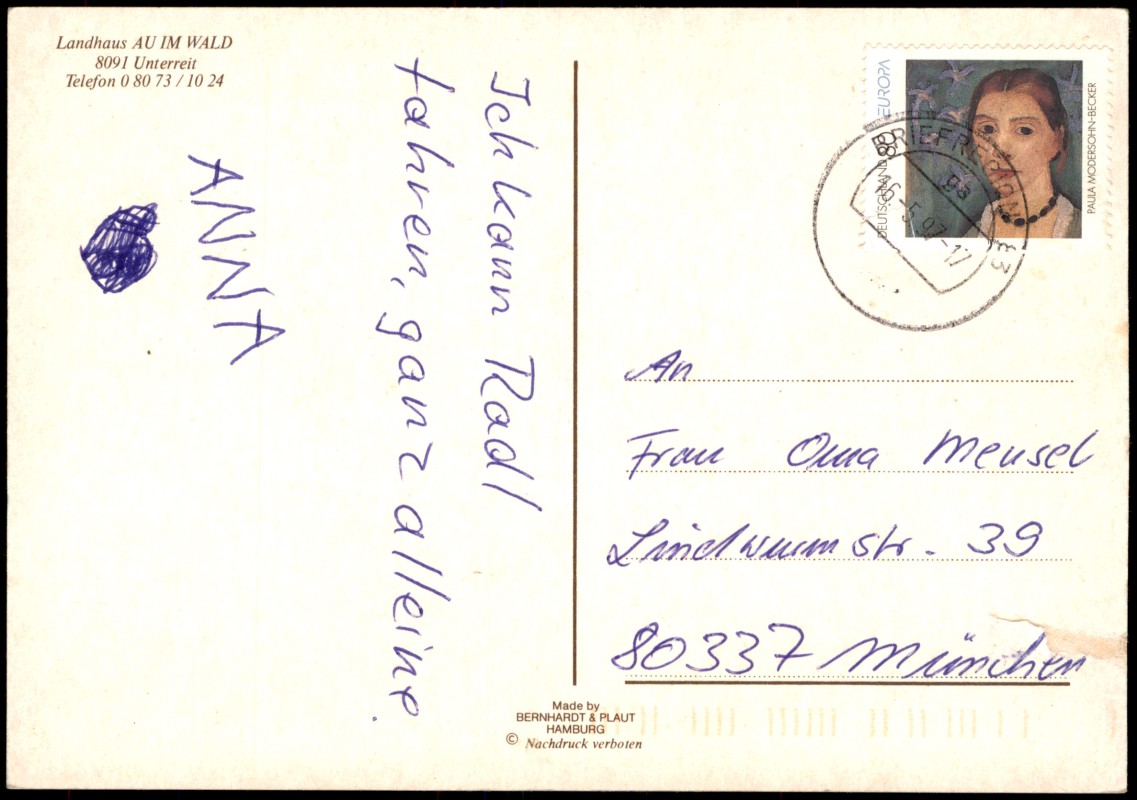 Landhaus AU IM WALD
8091 Unterreit
Telefon 0 80 73 / 10 24
Ich kann Radl
fahren, ganz alleine.
ANNA
EUROPA
DEUTSCHLAND
PAULA MODERSOHN-BECKER
BRIEFREGION
16-5.97-17
An
Frau Oma Mensel
Lindwurmstr. 39
80337 München
Made by
BERNHARDT & PLAUT
HAMBURG
© Nachdruck verboten